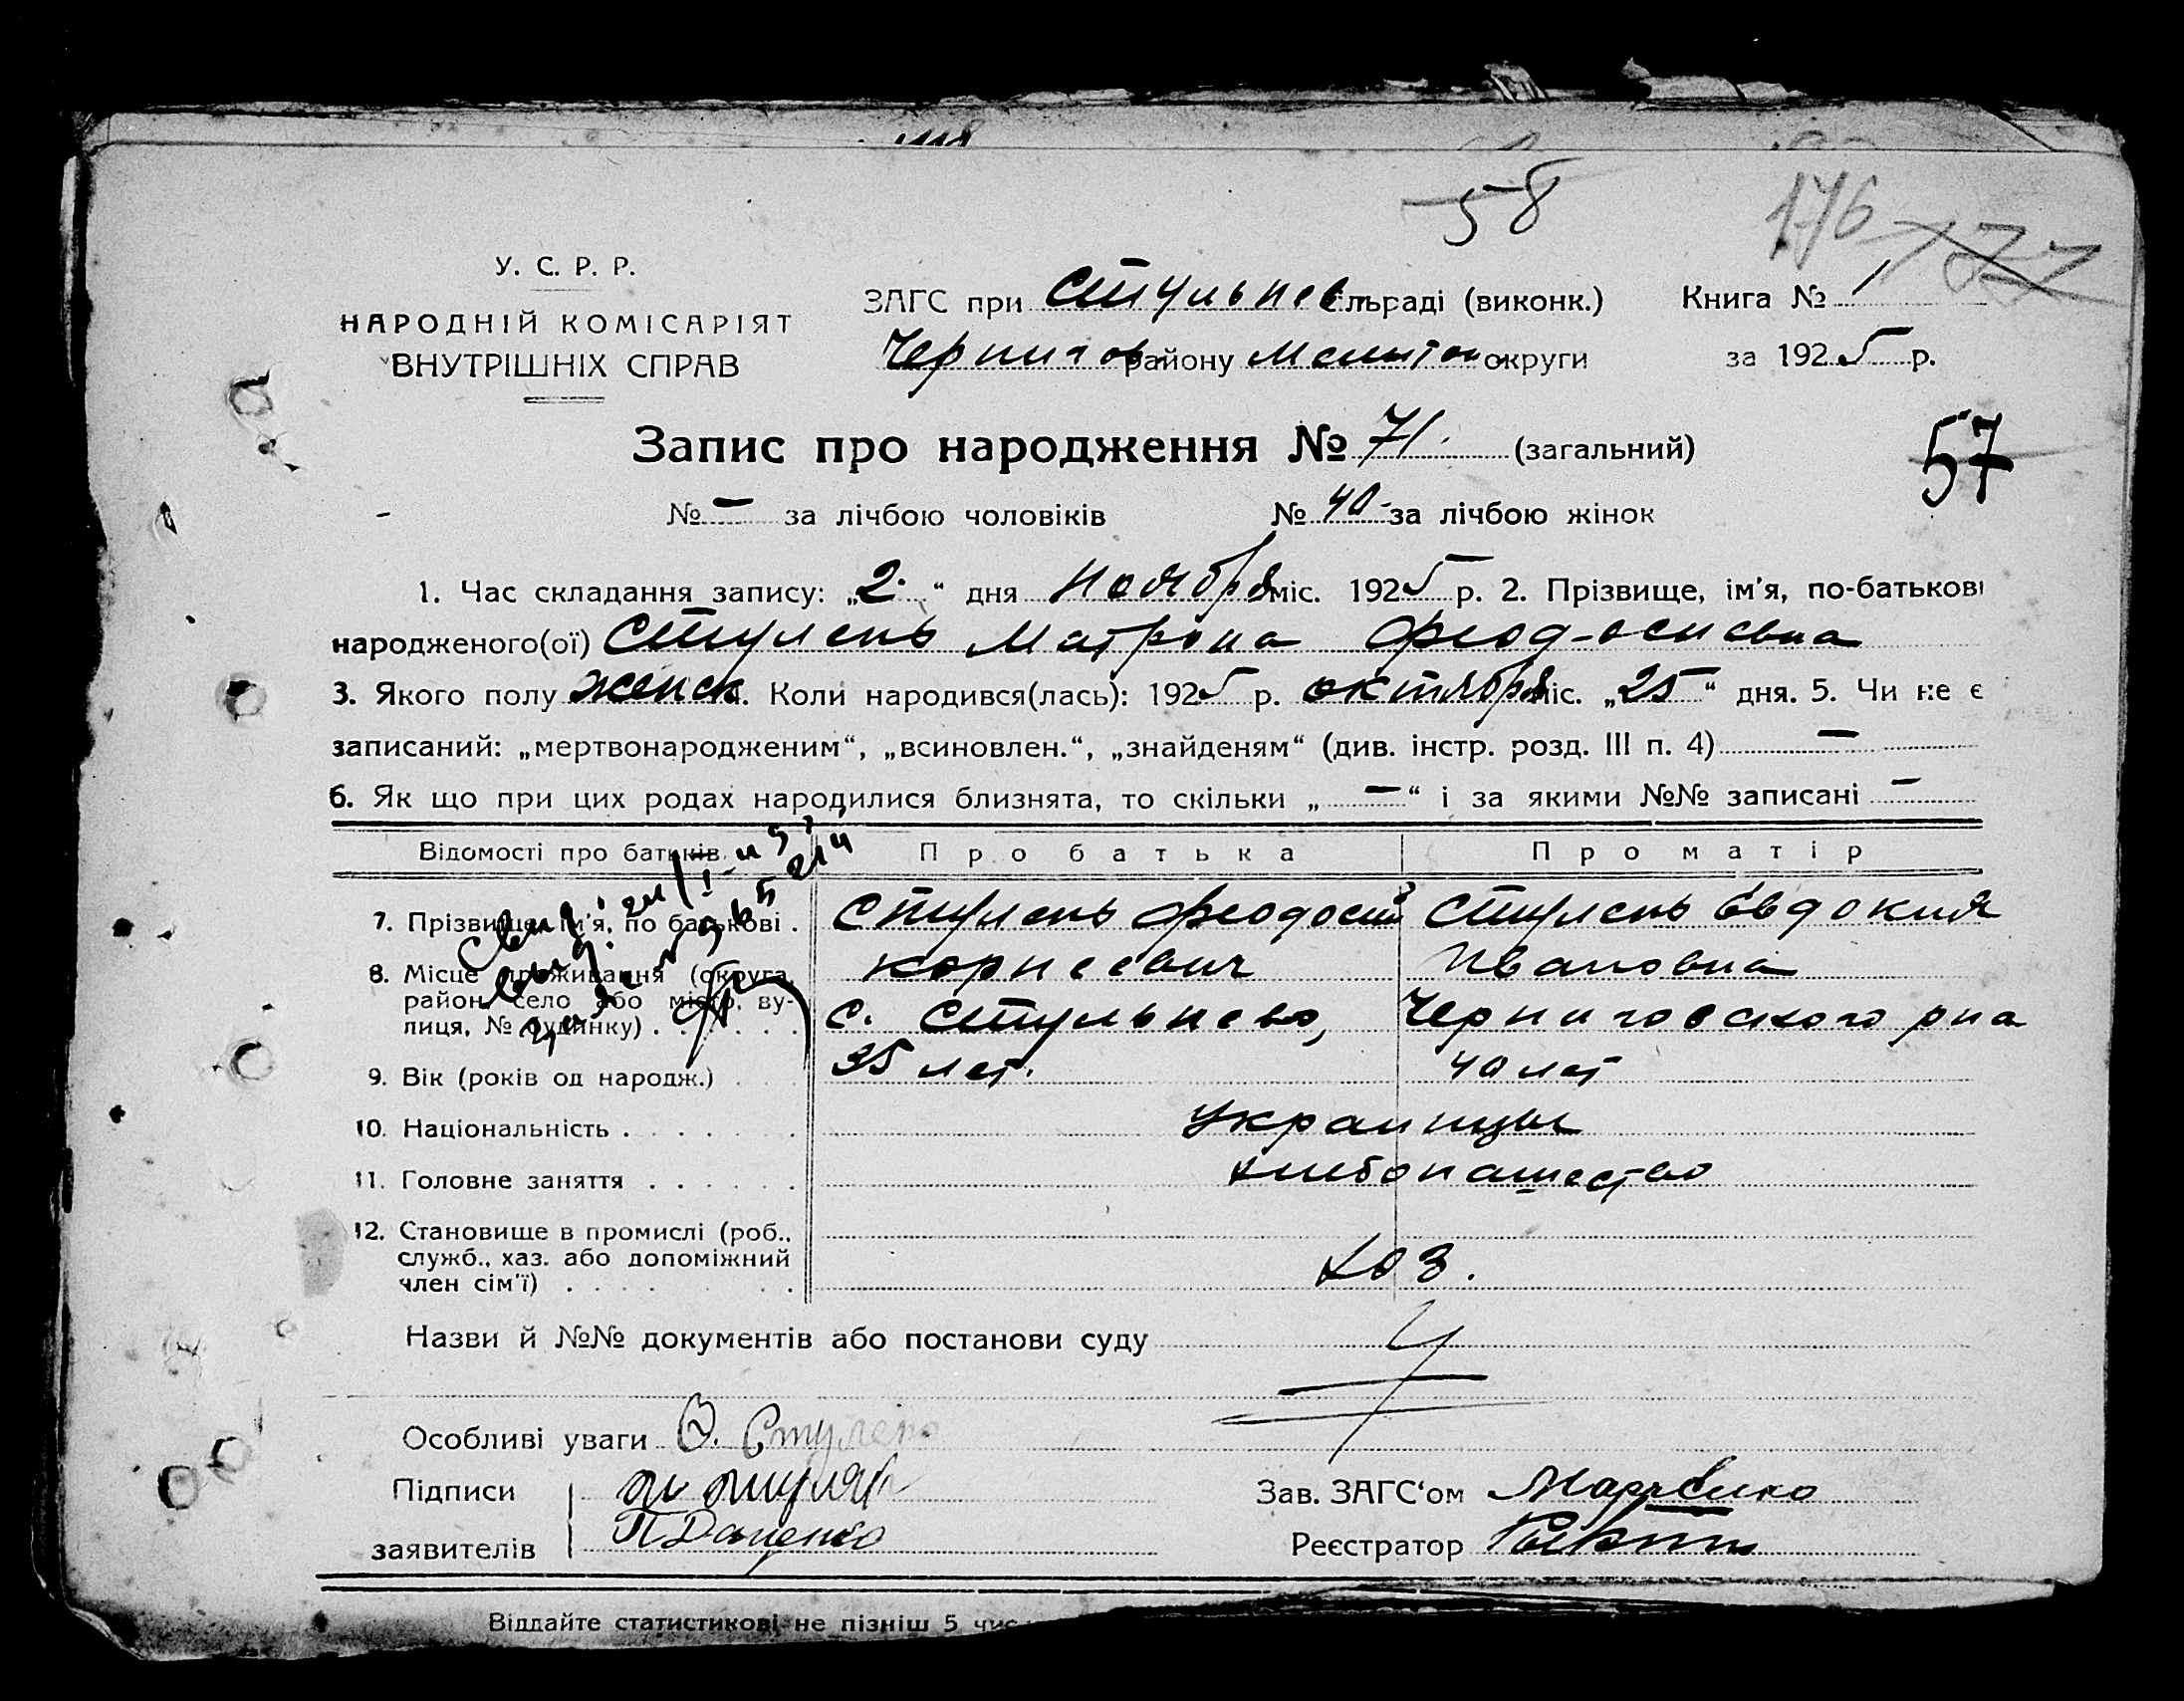 58
176 177
У. С. Р. Р.
НАРОДНІЙ КОМІСАРІЯТ
ВНУТРІШНІХ СПРАВ
ЗАГС при Стульнев сільраді (виконк.) Книга № 1
Чернигов району Мелитоп округи за 1925 р.
Запис про народження № 71. (загальний)
57
№ — за лічбою чоловіків № 40 за лічбою жінок
1. Час складання запису: „2“ дня Ноября міс. 1925 р. 2. Прізвище, ім'я, по-батькові
народженого(ої) Стулень Матрона Феодосиевна
3. Якого полу женск. Коли народився(лась): 1925 р. октября міс. „25“ дня. 5. Чи не є
записаний: „мертвонародженим“, „всиновлен.“, „знайденям“ (див. інстр. розд. III п. 4) —
6. Як що при цих родах народилися близнята, то скільки „ — “ і за якими №№ записані —
Відомості про батьків Про батька Про матір
7. Прізвище, ім'я, по батькові . Стулень Феодосий Стулень Евдокия
8. Місце проживання (округа, корнеевич Ивановна
район, село або місто, ву-
лиця, № будинку) . . . . . . с. Стульнево, Черниговского рна
9. Вік (років од народж.) . . 35 лет. 40 лет
10. Національність . . . . . . . Украинцы
11. Головне заняття . . . . . . хлебопашество
12. Становище в промислі (роб.,
служб., хаз. або допоміжний
член сім'ї) . . . . . . . . хоз.
Назви й №№ документів або постанови суду
Особливі уваги Ф. Стулень
Підписи
заявителів П Даценко
Зав. ЗАГС'ом Марченко
Реєстратор
Віддайте статистикові не пізніш 5